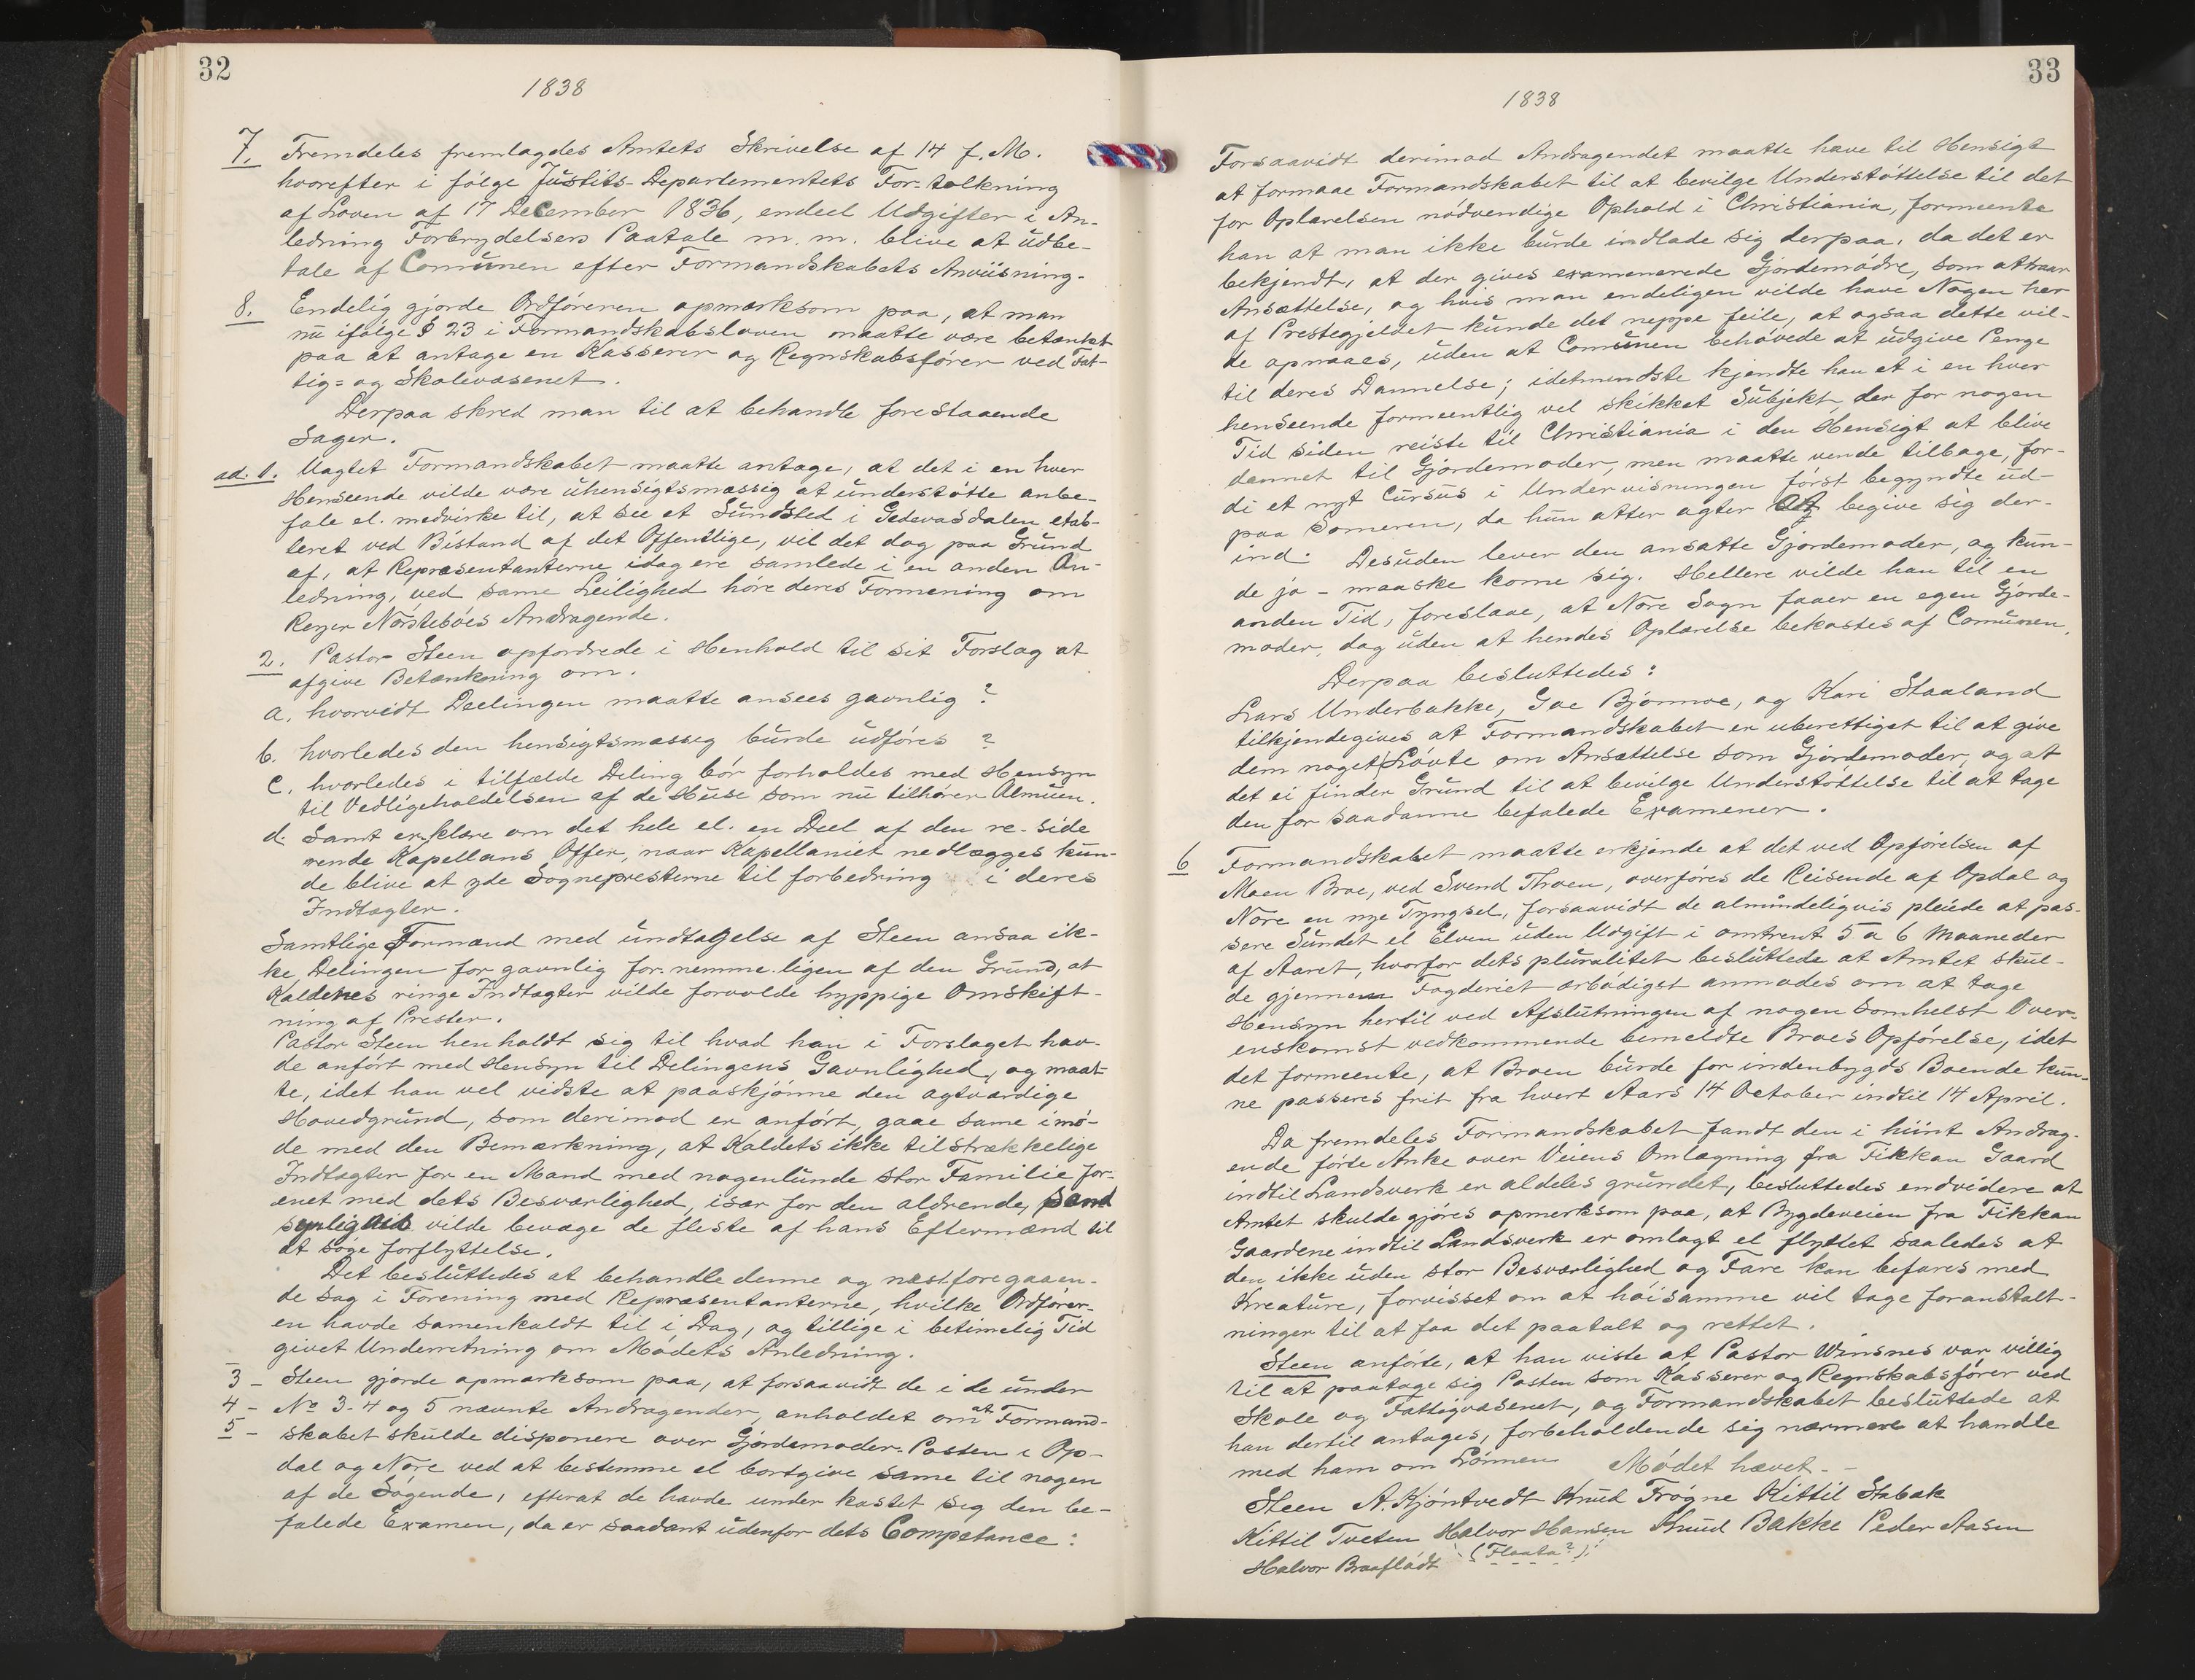 32
1838
7. Fremdeles fremlagdes Amtets Skrivelse af 14 f. M.
hvorefter i følge Justits-Departementets For-tolkning
af Loven af 17 December 1836, endeel Udgifter i An-
ledning Forbrydelsers Paatale m. m. blive at udbe-
tale af Comunen efter Formandskabets Anviisning.
8. Endelig gjorde Ordføreren opmærksom paa, at man
nu ifølge § 23 i Formandskabsloven maatte være betænkt
paa at antage en Kasserer og Regnskabsfører ved Fat-
tig= og Skolevæsenet.
Derpaa skred man til at behandle forestaaende
Sager.
ad. 1. Uagtet Formandskabet maatte antage, at det i en hver
Henseende vilde være uhensigtsmæssig at understøtte anbe-
fale el. medvirke til, at see et Sundsted i Gedevasdalen etab-
leret ved Bistand af det Offentlige, vil det dog paa Grund
af, at Repræsentanterne idag ere samlede i en anden An-
ledning, ved same Leilighed høre deres Formening om
Reyer Nørstebøes Andragende.
2. Pastor Steen opfordrede i Henhold til sit Forslag at
afgive Betænkning om.
a. hvorvidt Deelingen maatte ansees gavnlig?
b. hvorledes den hensigtsmæsseg burde udføres ?
c. hvorledes i tilfælde Deling bør forholdes med Hensyn
til Vedligeholdelsen af de Huse som nu tilhører Almuen.
d. Samt erklære om det hele el. en Deel af den re-side
rende Kapellans Offer, naar Kapellaniet nedlægges kun-
de blive at yde Sognepresterne til forbedring i deres
Indtægter.
Samtlige Formænd med undtagelse af Steen ansaa ik-
ke Delingen for gavnlig for-nemme-ligen af den Grund, at
Kaldenes ringe Indtægter vilde forvolde hyppige Omskift-
ning af Prester.
Pastor Steen henholdt sig til hvad han i Forslaget hav-
de anført med Hensyn til Delingens Gavnlighed, og maat-
te, idet han vel vidste at paaskjønne den agtværdige
Hovedgrund, som derimod er anført, gaae same imø-
de med den Bemærkning, at Kaldets ikke tilstrækkelige
Indtægter for en Mand med nogenlunde stor Familie for-
enet med dets Besværlighed, især for den aldrende, Sand
synligviis vilde bevæge de fleste af hans Eftermænd til
at søge forflyttelse.
Det besluttedes at behandle denne og næst foregaaen-
de Sag i Forening med Repræsentanterne, hvilke Ordfører-
en havde samenkaldt til i Dag, og tillige i betimelig Tid
givet Underretning om Mødets Anledning.
3 - Steen gjorde opmærksom paa, at forsaavidt de i de under
4 - No 3-4 og 5 nævnte Andragender, anholdet om at Formand-
5 - skabet skulde disponere over Gjordemoder-Posten i Op-
dal og Nore ved at bestemme el bortgive same til nogen
af de Søgende, efterat de havde under kastet sig den be-
falede Examen, da er saadant udenfor dets Competance:
33
1838
Forsaavidt derimod Andragendet maatte have til Hensigt
at formaae Formandskabet til at bevilge Understøttelse til det
for Oplærelsen nødvendige Ophold i Christiania, formeente
han at man ikke burde indlade sig derpaa, da det er
bekjendt, at der gives examenerede Gjordemødre, som attraar
Ansættelse, og hvis man endeligen vilde have Nogen her
af Prestegjeldet kunde det neppe feile, at ogsaa dette vil-
de opnaaes, uden at Comunen behøvede at udgive Penge
til deres Dannelse; idetmindste kjendte han et i en hver
henseende formeentlig vel skikket Subjekt, der for nogen
Tid siden reiste til Christiania i den Hensigt at blive
dannet til Gjordemoder, men maatte vende tilbage, for-
di et nyt Cursus i Undervisningen først begyndte ud-
paa Someren, da hun atter agter at begive sig der-
ind. Desuden lever den ansatte Gjordemoder, og kun-
de jo - maaske kome sig. Hellere vilde han til en
anden Tid, foreslaae, at Nore Sogn faaer en egen Gjorde-
moder, dog uden at hendes Oplærelse bekostes af Comunen.
Derpaa besluttedes:
Lars Underbakke, Goe Bjørnnoe, og Kari Staaland
tilkjendegives at Formandskabet er uberettiget til at give
dem noget Løvte om Ansættelse som Gjordemoder, og at
det ei finder Grund til at bevilge Understøttelse til at tage
den for saadanne befalede Examener.
6 Formandskabet maatte erkjende at det ved Opførelsen af
Moen Broe, ved Svend Throen, overføres de Reisende af Opdal og
Nore en nye Tyngsel, forsaavidt de almindeligvis pleiede at pas-
sere Sundet el Elven uden Udgift i omtrent 5 a 6 Maaneder
af Aaret, hvorfor dets pluralitet besluttede at Amtet skul-
de gjennem Fogderiet ærbødigst anmodes om at tage
Hensyn hertil ved Afslutningen af nogen somhelst Over-
enskomst vedkommende bemeldte Broes Opførelse, idet
det formeente, at Broen burde for indenbygds Boende kun-
ne passeres frit fra hvert Aars 14 October indtil 14 April.
Da fremdeles Formandskabet fandt den i hiint Andrag-
ende førte Anke over Veiens Omlægning fra Fikkan Gaard
indtil Landsverk er aldeles grundet, besluttedes endvidere at
Amtet skulde gjøres opmerksom paa, at Bygdeveien fra Fikkan
Gaardene indtil Landsverk er omlagt el flyttet saaledes at
den ikke uden stor Besværlighed og Fare kan befares med
Kreature, forvisset om at høisamme vil tage foranstalt-
ninger til at faa det paatalt og rettet.
Steen anførte, at han viste at Pastor Winsnes var villig
til at paatage sig Posten som Kasserer og Regnskabsfører ved
Skole og Fattigvæsenet, og Formandskabet besluttede at
han dertil antages, forbeholdende sig nærmere at handle
med ham om Lønnen Mødet hævet.-
Steen A. Kjøntvedt Knud Frøgne Kittil Stabæk
Kittil Tveten Halvor Hansen Knud Bakke Peder Aasen
Halvor Braaflådt (Flaata?)